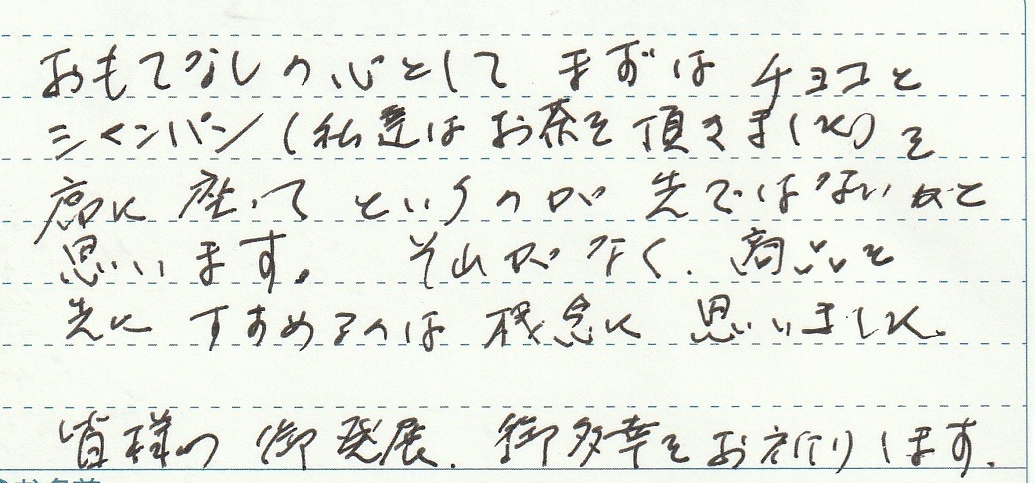 おもてなしの心として まずは チョコと
シャンパン（私達は お茶を 頂きました）を
席に 座って というのが 先ではないかと
思います。 それがなく、商品を
先に すすめるのは 残念に 思いました。
皆様の 御発展、御多幸をお祈りします。